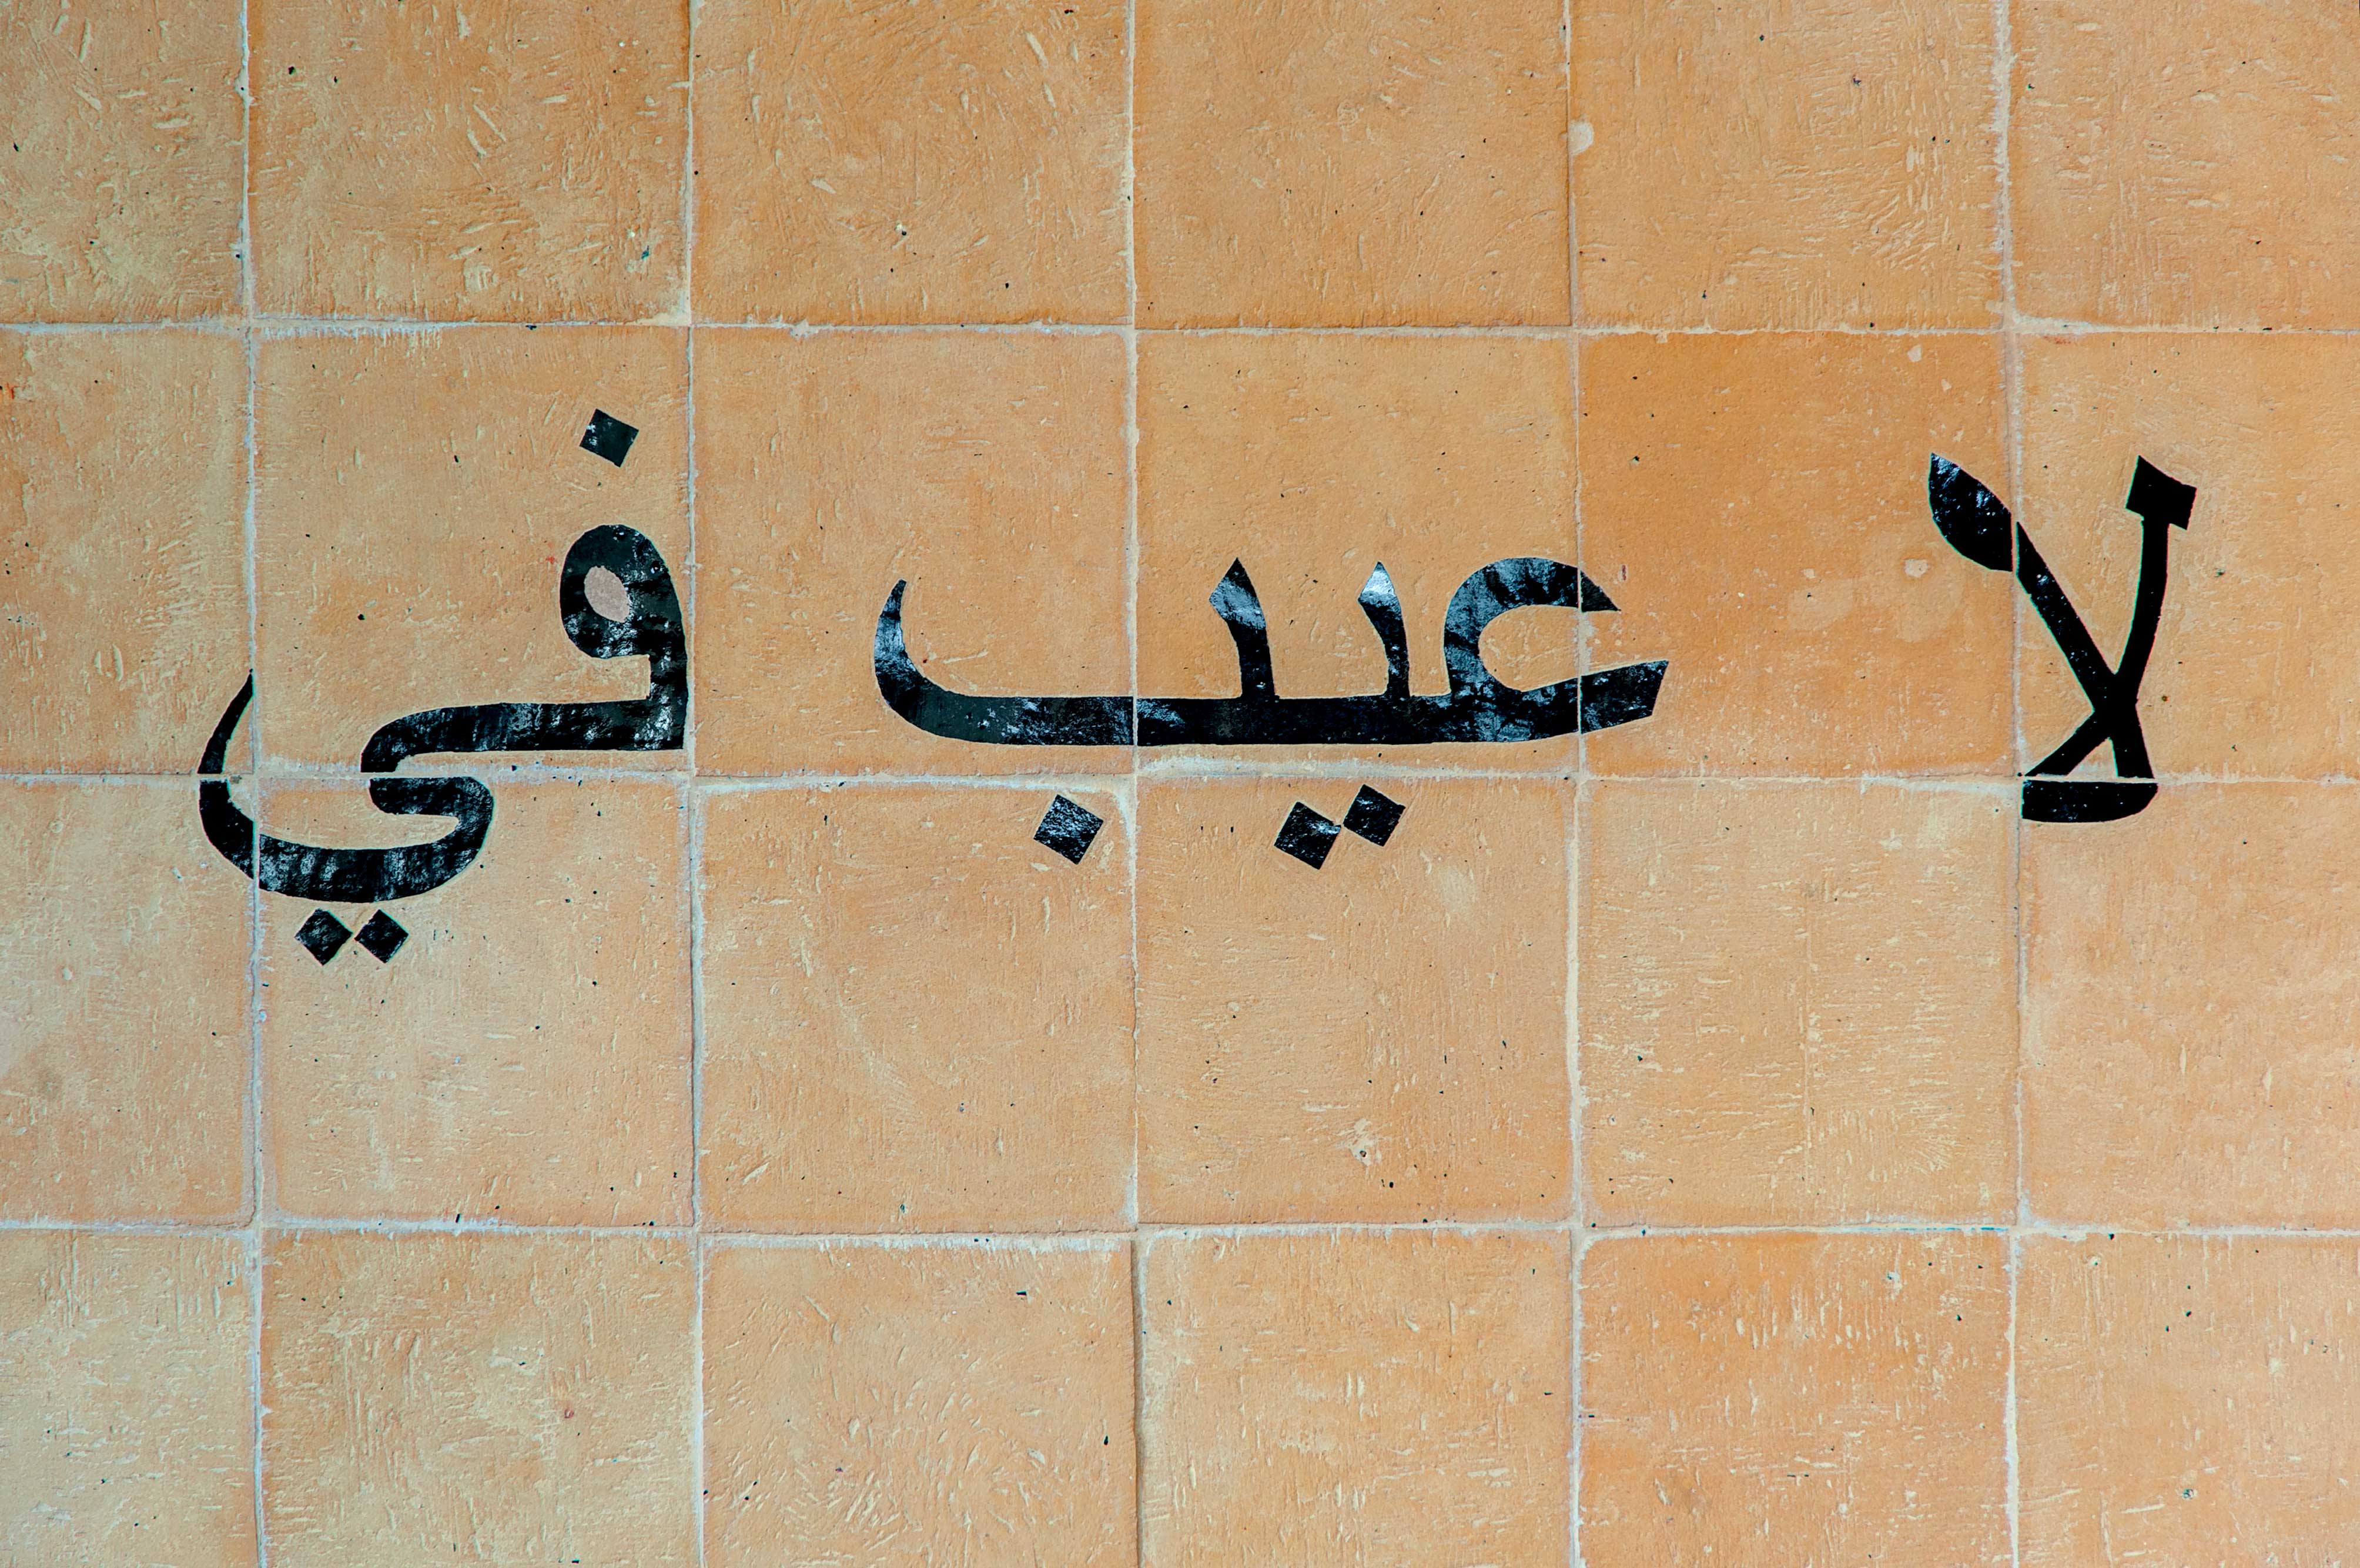 لا عيب في